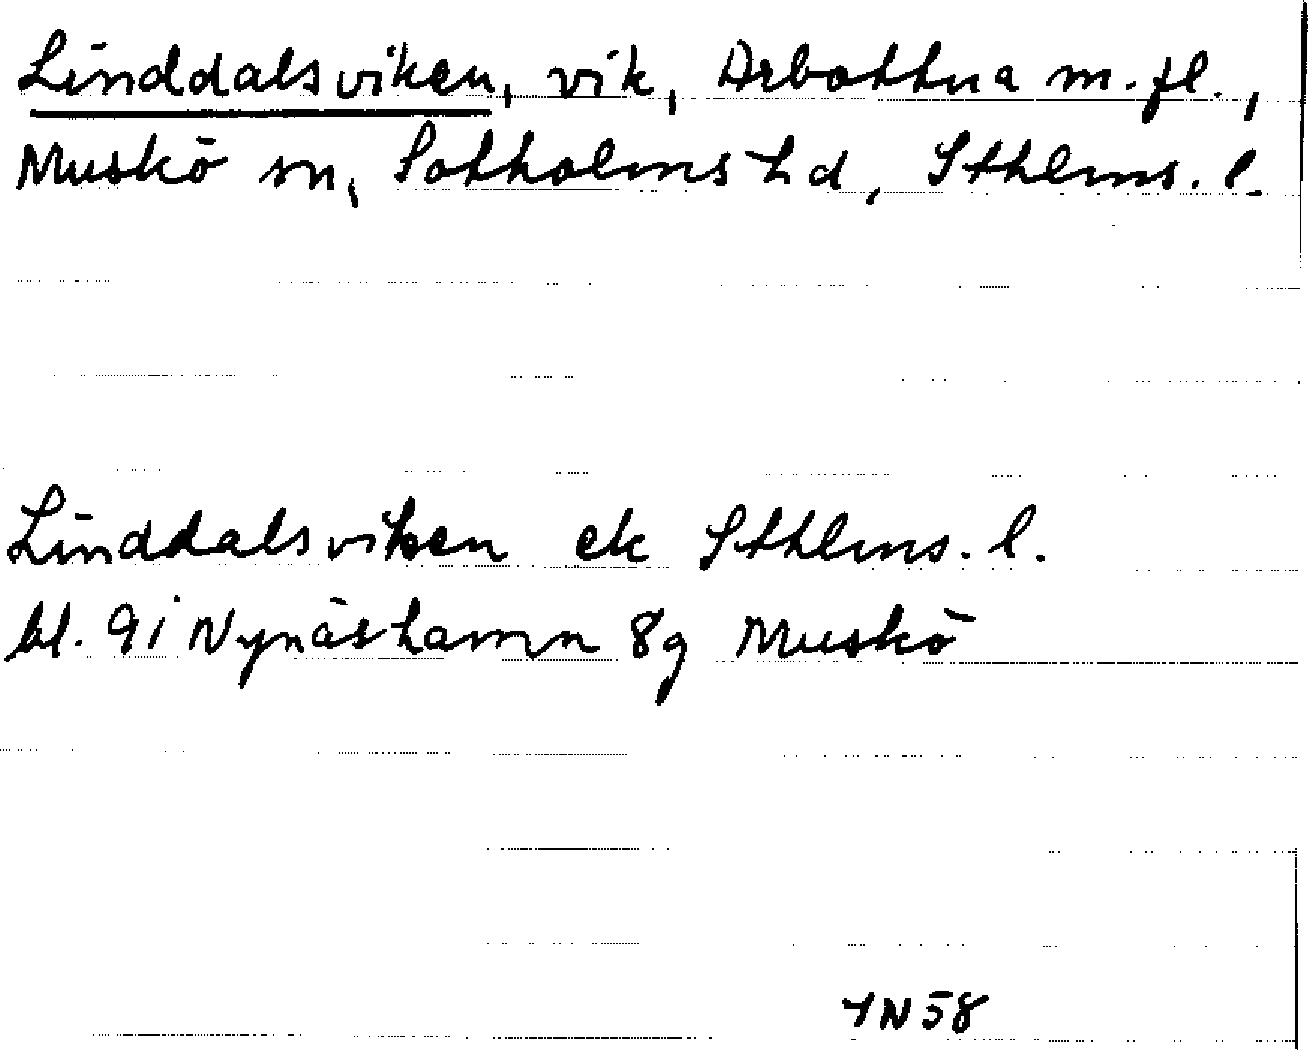 Linddalsviken, vik, Arbottna m.fl.,
Muskö sn, Sotholms hd, Sthlms. l.
Linddalsviken ek Sthlms. l.
bl. 91 Nynäshamn 8g Muskö
YN 58